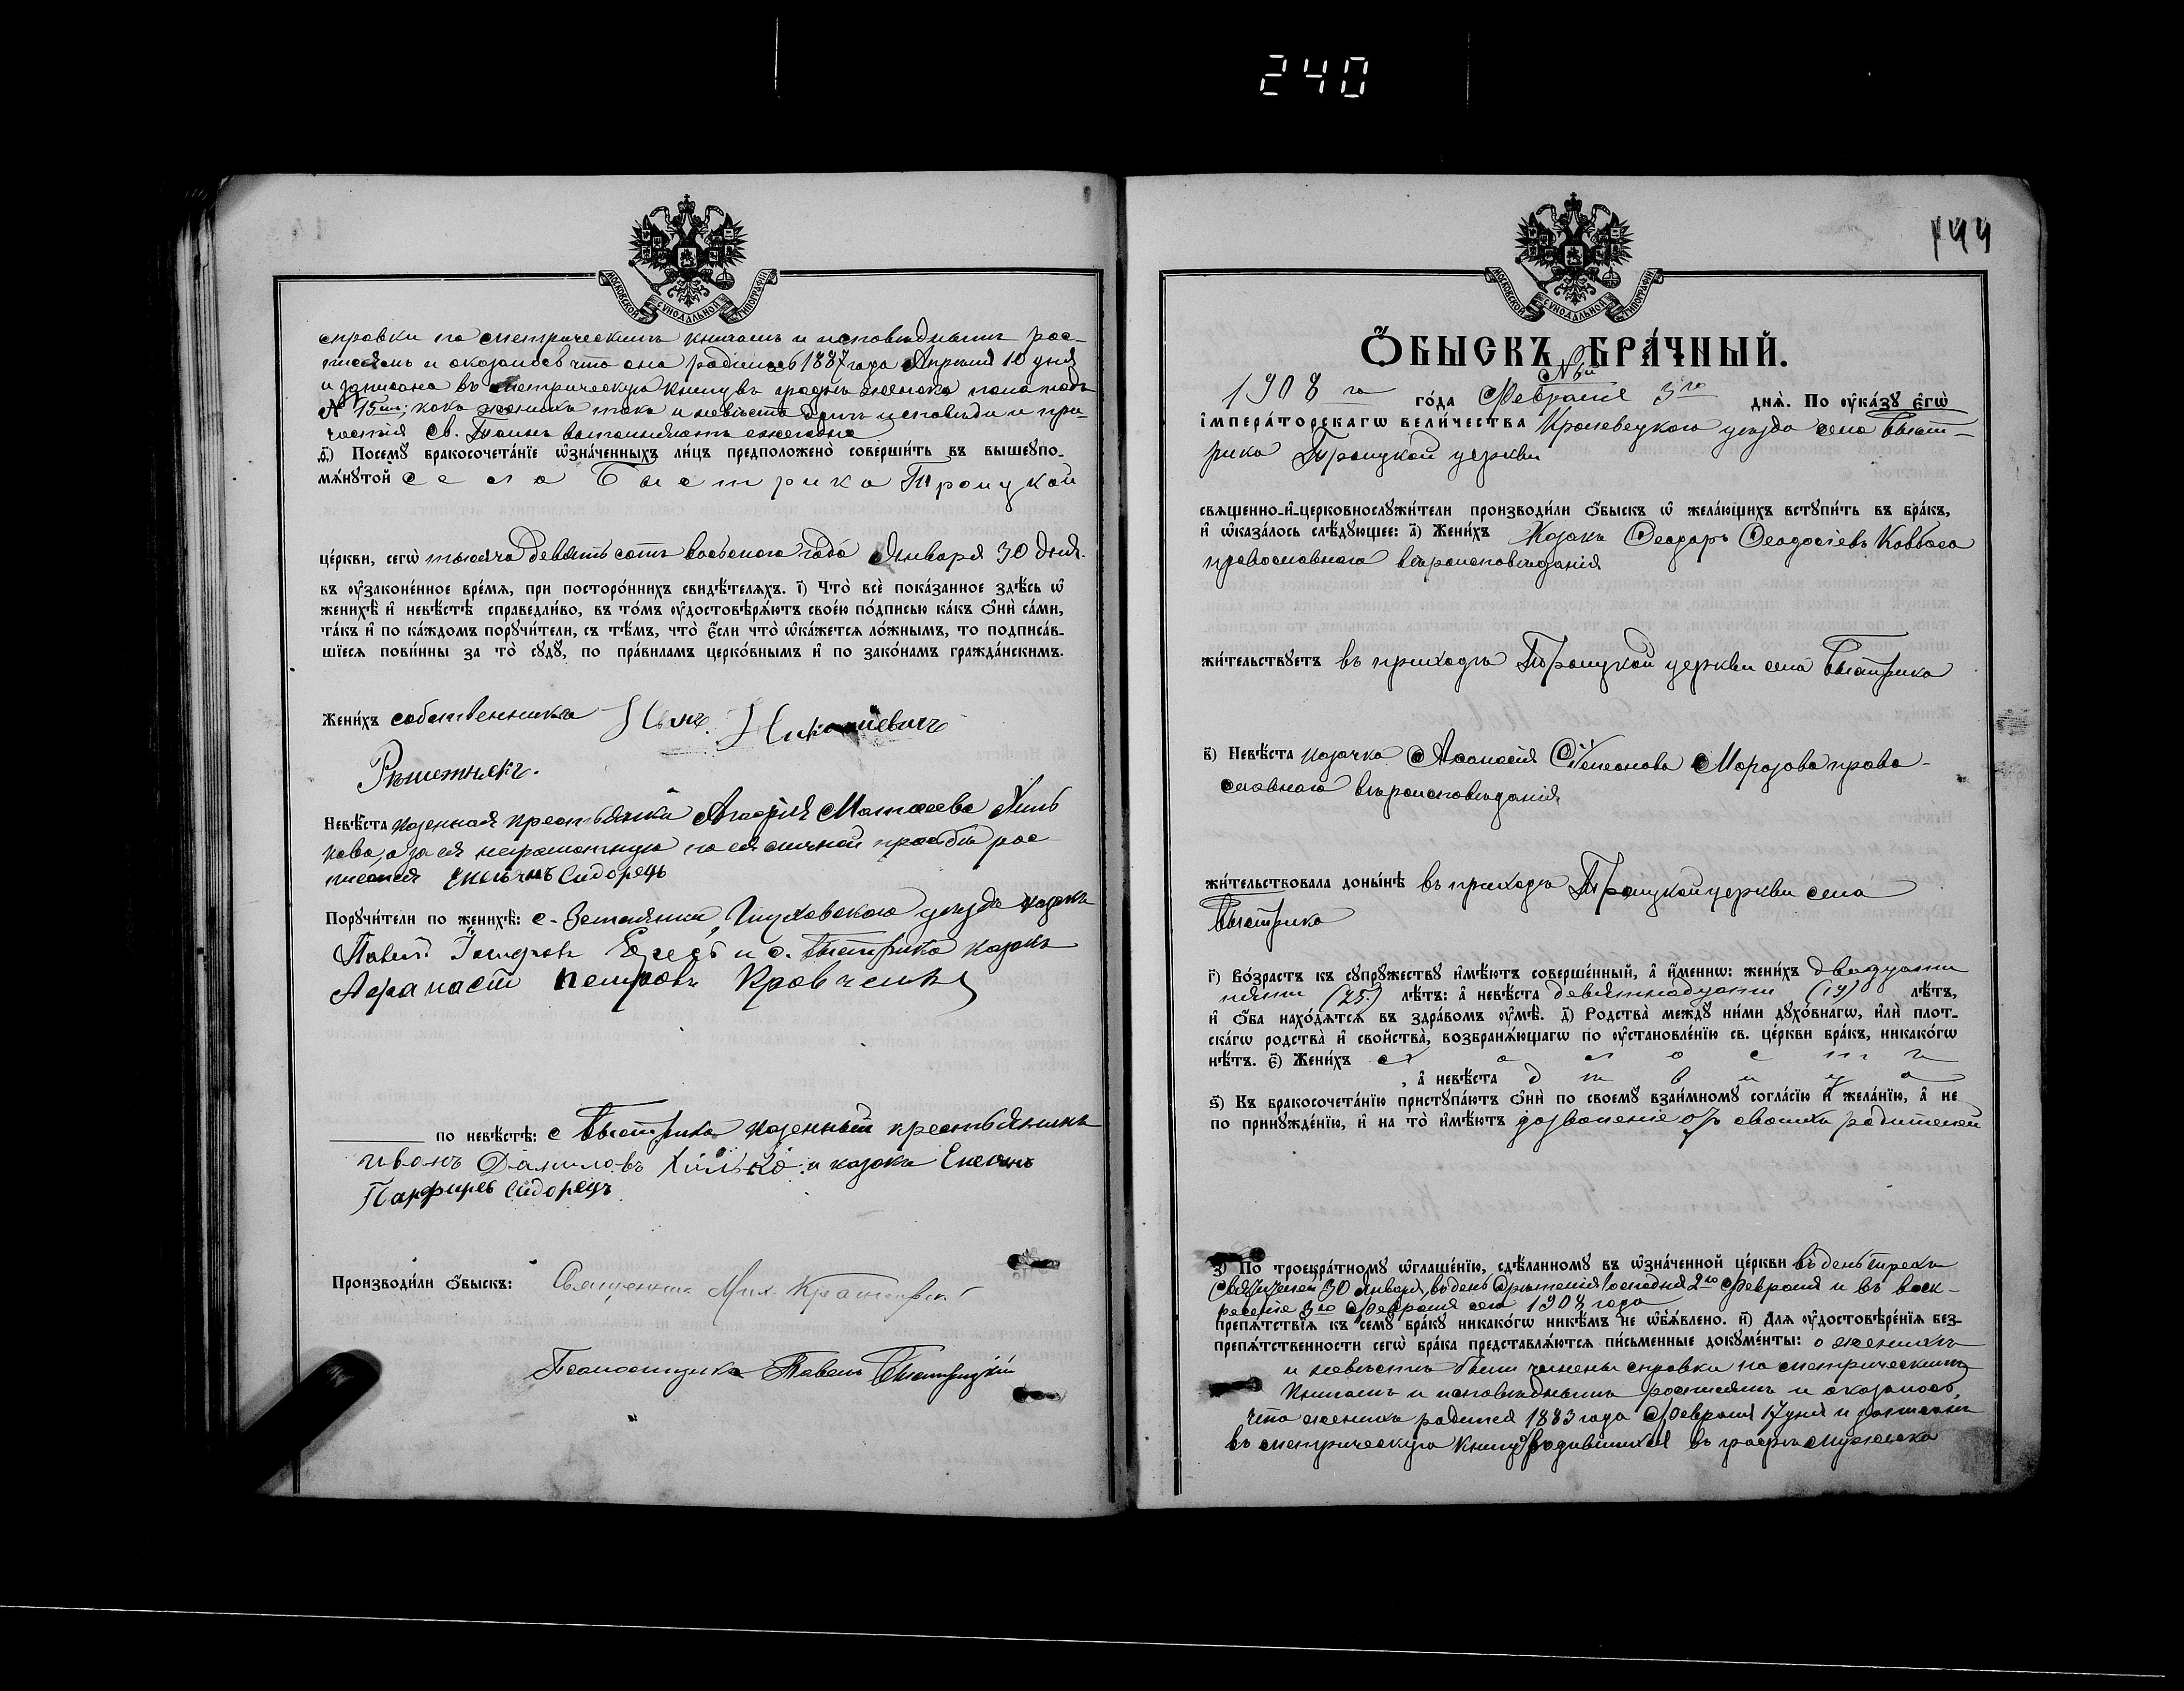 240
144
МОСКОВСКОЙ СѴНОДАЛЬНОЙ ТИПОГРАФІИ
справки по метрическимъ книгамъ и исповѣднымъ рос-
писямъ и оказалось что она родилась 1887 года Апрѣля 10 дня
и записана въ метрическую книгу въ графѣ женска пола подъ
№ 15мъ; какъ женихъ такъ и невѣста долгъ исповѣди и при-
частія Св. Таинъ выполняютъ ежегодно
д҃) Посемꙋ бракосочета́нїе ѡ҆зна́ченныхъ ли́цъ предположено̀ соверши́ть въ вышеꙋпо-
мѧ́нꙋтой села Быстрика Троицкой
це́ркви, сегѡ̀ тысяча девять сотъ восьмого года Января 30 дня.
въ ᲂу҆зако́ненное вре́мѧ, при посторо́ннихъ свидѣ́телѧхъ. і҃) Что̀ всѐ пока́занное здѣ́сь ѡ҆
женихѣ̀ и҆ невѣ́стѣ справедли́во, въ то́мъ ᲂу҆достовѣрѧ́ютъ свое́ю по́дписью ка́къ ѻ҆нѝ са́ми,
та́къ и҆ по ка́ждомъ порꙋчи́тели, съ тѣ́мъ, что̀ є҆́сли что̀ ѡ҆ка́жетсѧ ло́жнымъ, то подписа́в-
шїесѧ пови́нны за то̀ сꙋдꙋ̀, по пра́виламъ церко́внымъ и҆ по зако́намъ гражда́нскимъ.
Жени́хъ собственникъ
Рѣшетнякъ.
Невѣ́ста казенная крестьянка Агафія Матѳеева Хиль
кова, а за ея неграмотную по ея личной прозьбѣ рос-
писался Сидорецъ
Порꙋчи́тели по женихѣ̀: с. Землянки, Глуховского уѣзда козакъ
Павелъ и с. Быстрика козакъ
Афанасій Петровъ Кравченко
по невѣ́стѣ: с Быстрика казенный крестьянинъ
Иванъ Даниловъ Хилько и козакъ
Парфиревъ Сидорецъ
Производи́ли ѻ҆́быскъ: Священникъ Мих.
Псаломщикъ Павелъ Быстрицкій
МОСКОВСКОЙ СѴНОДАЛЬНОЙ ТИПОГРАФІИ
Ѻ҆́БЫСКЪ БРА́ЧНЫЙ.
№ 6й
1908 го го́да Февраля 3го днѧ̀. По ᲂу҆ка́зꙋ є҆гѡ̀
і҆мпера́торскагѡ вели́чества Кролевецкого уѣзда села Быст-
рика Троицкой церкви
свѧщенно-и҆-церковнослꙋжи́тели производи́ли ѻ҆́быскъ ѡ҆ жела́ющихъ встꙋпи́ть въ бра́къ,
и҆ ѡ҆каза́лось слѣ́дꙋющее: а҃) Жени́хъ Козакъ Ѳеодоръ Ѳеодосіевъ Ковбаса
православного вѣроисповѣданія
жи́тельствꙋетъ въ приходѣ Троицкой церкви села Быстрика
в҃) Невѣ́ста козачка Аѳанасія Симеонова Морозова право-
славного вѣроисповѣданія
жи́тельствовала доны́нѣ въ приходѣ Троицкой церкви села
Быстрика
г҃) Во́зрастъ къ сꙋпрꙋ́жествꙋ и҆мѣ́ютъ соверше́нный, а҆ и҆́меннѡ: жени́хъ двадцати
пяти (25) лѣ́тъ: а҆ невѣ́ста девятнадцати (19) лѣ́тъ,
и҆ ѻ҆́ба нахо́дѧтсѧ въ здра́вомъ ᲂу҆мѣ̀. д҃) Родства̀ междꙋ ни́ми дꙋхо́внагѡ, и҆лѝ плот-
ска́гѡ родства̀ и҆ свойства̀, возбранѧ́ющагѡ по ᲂу҆становле́нїю св. це́ркви бра́къ, никако́гѡ
нѣ́тъ. є҃) Жени́хъ холостъ
, а҆ невѣ́ста дѣвица
ѕ҃) Къ бракосочета́нїю пристꙋпа́ютъ ѻ҆нѝ по своемꙋ̀ взаи́мномꙋ согла́сїю и҆ жела́нїю, а҆ не
по принꙋжде́нїю, и҆ на то̀ и҆мѣ́ютъ дозволеніе отъ своихъ родителей
з҃) По троекра́тномꙋ ѡ҆глаше́нїю, сдѣ́ланномꙋ въ ѡ҆зна́ченной це́ркви въ день трехъ
Святителей 30 Января, въ день Срѣтенія Господня 2го Февраля и въ воск-
ресеніе 3го Февраля сего 1908 года
препѧ́тствїѧ къ семꙋ̀ бра́кꙋ никако́гѡ никѣ́мъ не ѡ҆б̾ѧ́влено. и҃) Длѧ ᲂу҆достовѣре́нїѧ без-
препѧ́тственности сегѡ̀ бра́ка представлѧ́ютсѧ пи́сьменные докꙋме́нты: о женихѣ
и невѣстѣ были чинены справки по метрическимъ
книгамъ и исповѣднымъ росписямъ и оказалось,
что женихъ родился 1883 года Февраля 17 дня и записанъ
въ метрическую книгу родившихся въ графѣ мужеска